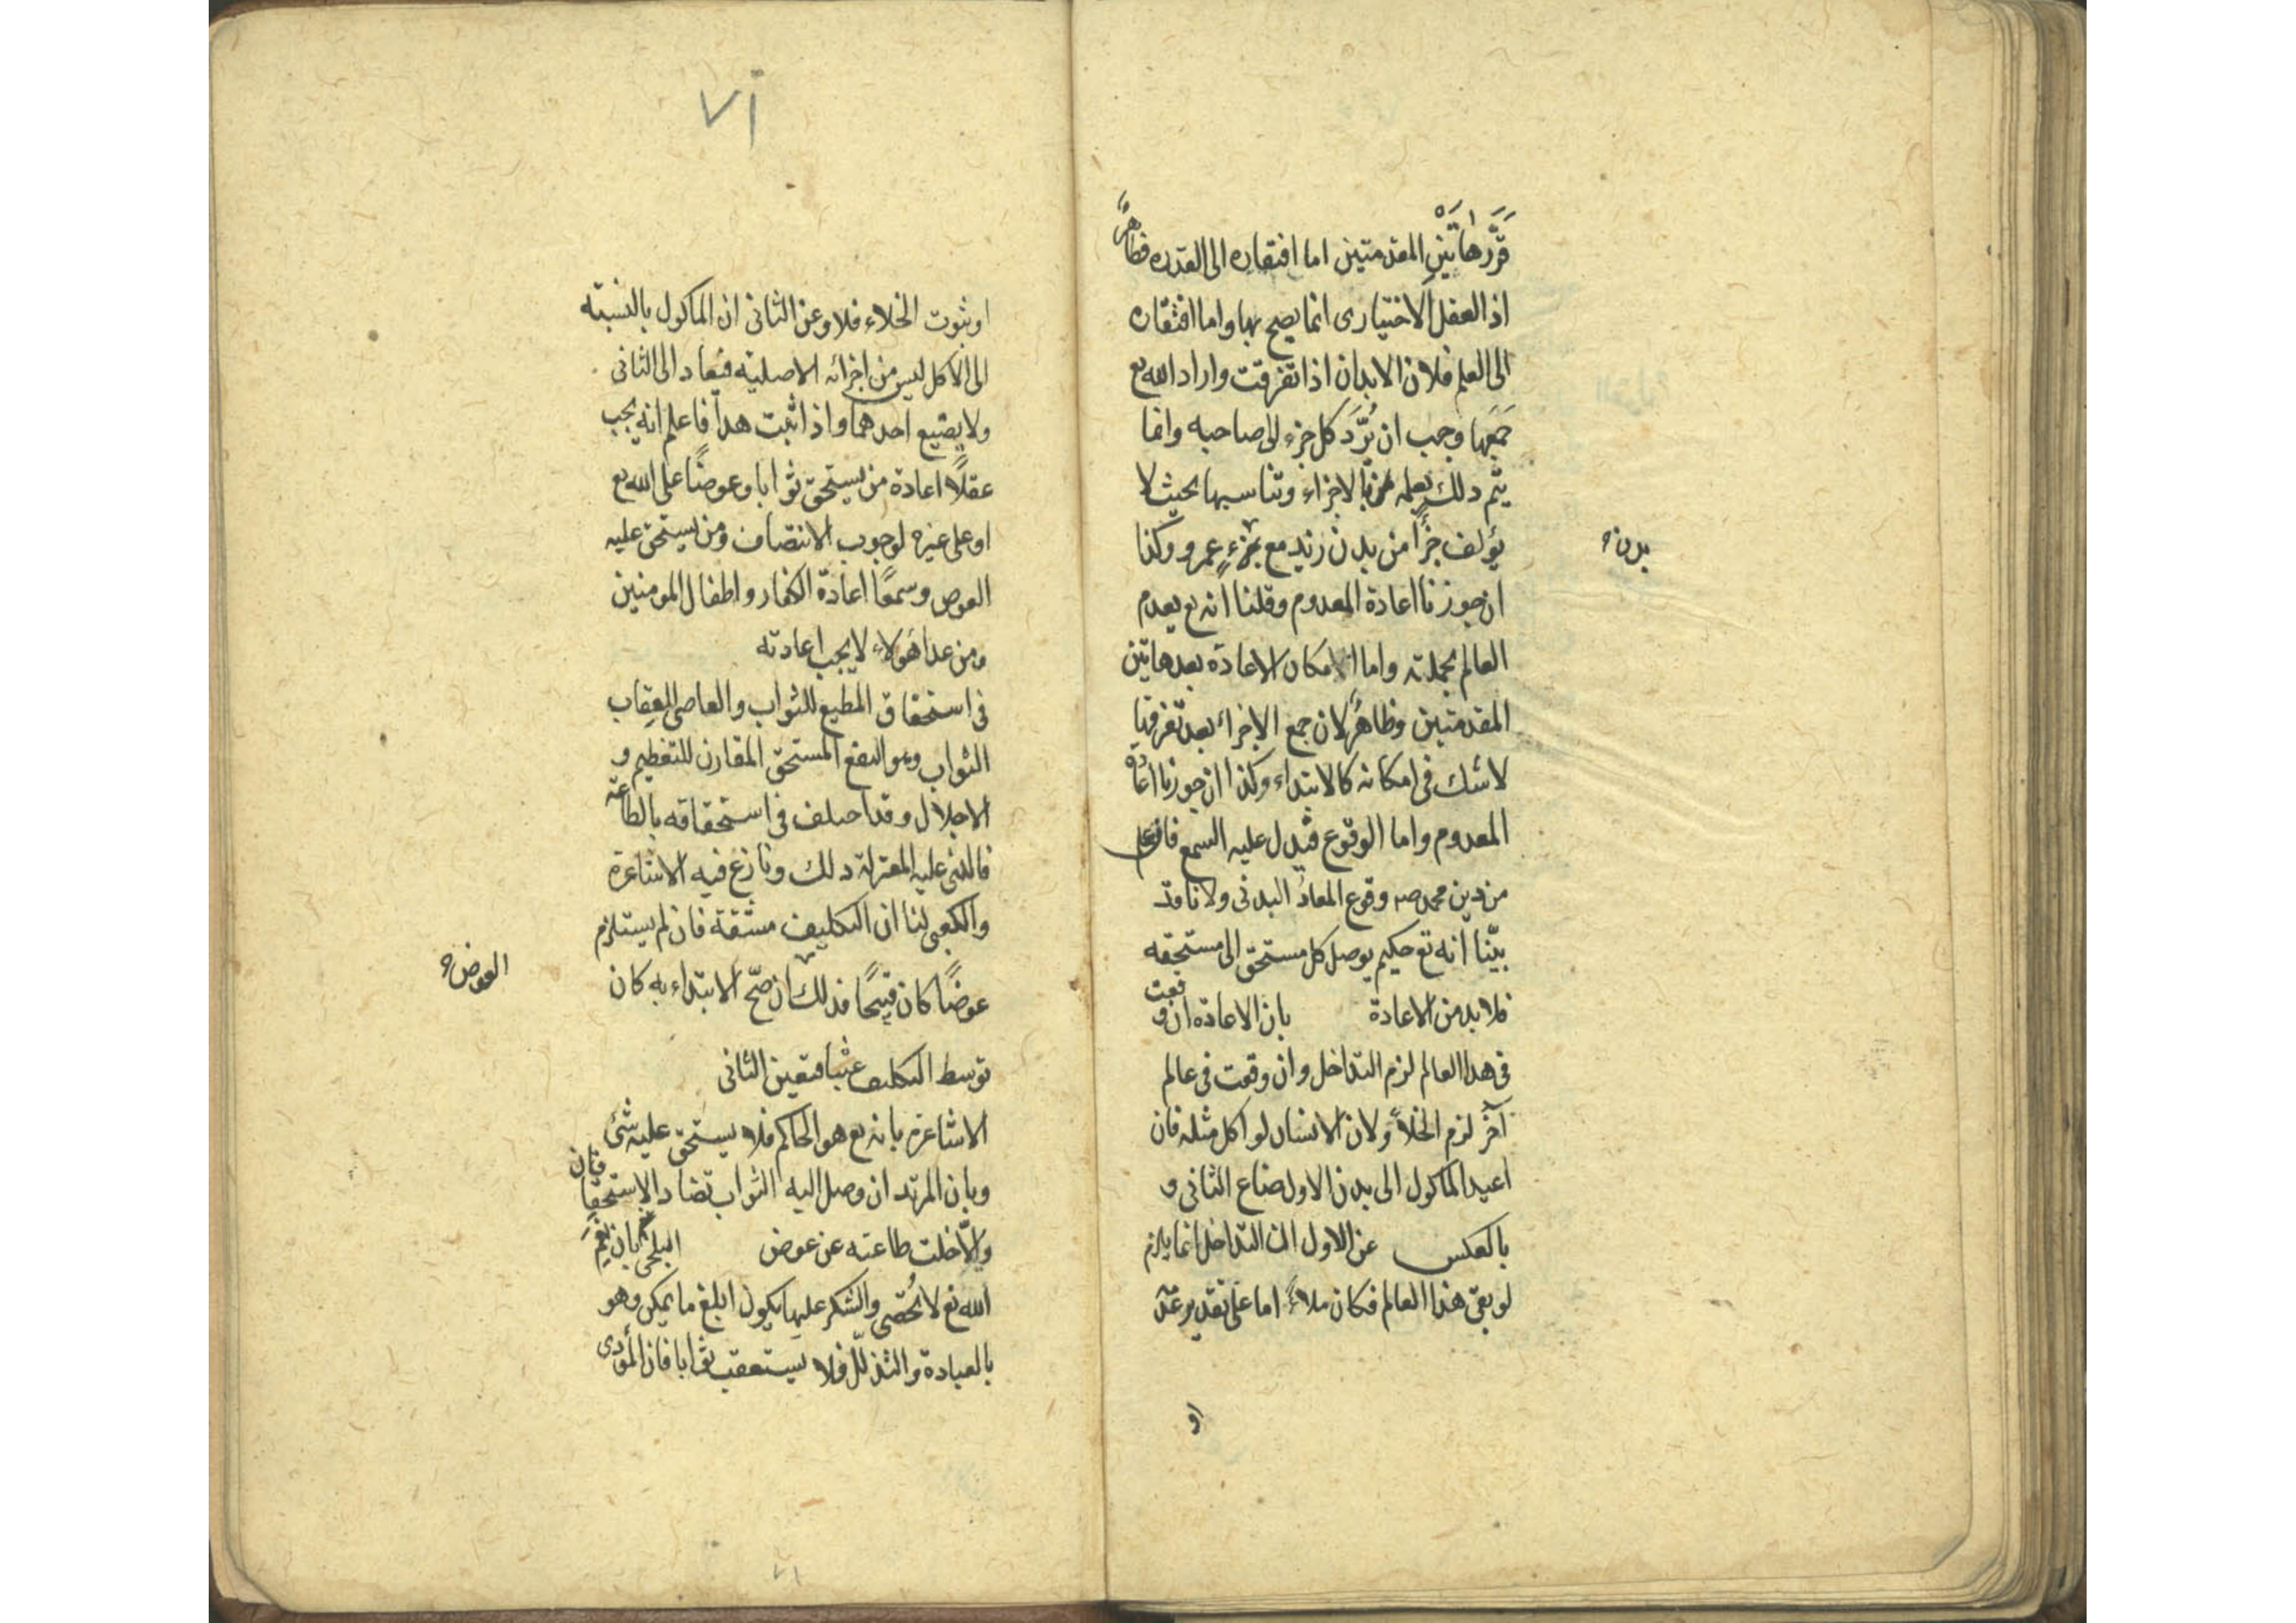 قرّر هاتين المقدمتين اما افتقاره الى القدره فظاهرٌ
اذ الفعل الاختيارى انما يصح بها واما افتقاره
الى العلم فلان الابدان اذا تفرقت واراد الله تع
جَمَعَها وجب ان يُرّدَ كل جزء الى صاحبه وانما
يتم ذلك بعلمه بالاجزاء وتناسبها بحيث لا
يؤلف جزأً من بدن زيد مع جزءٍ عمرو وكذا
بدن
ان جوزنا اعادة المعدوم وقلنا انه تع يعدم
العالم بجملته واما امكان الاعادة بعد هاتين
المقدمتين وظاهرٌ لان جمع الاجزاء بعد تفرقها
لا شك فى امكانه كالابتداء وكذا ان جوزنا اعادة
المعدوم واما الوقوع فيدل عليه السمع فان على
من دين محمد صه وقوع المعاد البدنى ولانا قد
بيّنا انه تع حكيم يوصل كل مستحق الى مستحقه
فلا بد من الاعادة بان الاعادة ان وقعت
فى هذا العالم لزم التداخل وان وقعت فى عالم
آخر لزم الخلأ ولان الانسان لو اكل مثله فان
اعيد الماكول الى بدن الاول ضاع الثانى و
بالعكس عن الاول ان التداخل انما يلزم
لو بقى هذا العالم فكان ملاءً اما على تقدير عدمه
او
٧١
او ثبوت الخلاء فلا وعن الثانى ان الماكول بالنسبته
الى الاكل ليس من اجزائه الاصليه فيعاد الى الثانى
ولا يضيع احدهما واذا ثبت هذا فاعلم انه يجب
عقلًا اعادة من يستحق ثوابا وعوضًا على الله تع
او على غيره لوجوب الانتصاف ومن يستحق عليه
العوض وسمعًا اعادة الكفار واطفال المومنين
ومن عدا هولاء لا يجب اعادته
فى استحقاق المطيع للثواب والعاصى للعقاب
الثواب وهو النفع المستحق المقارن للتعظيم و
الاجلال وقد اختلف فى استحقاقه بالطاعة
فالذى عليه المعتزلة ذلك ونازع فيه الاشاعرة
والكعبى لنا ان التكليف مشقة فان لم يستلزم
عوضًا كان قبيحًا فذلك ان صحّ الابتداء به كان
العوض
توسط التكليف عبثا فتعين الثانى
الاشاعره بانه تع هو الحاكم فلا يستحق عليه شئ
وبان المرتد ان وصل اليه الثواب تضاد الاستحقاقان
والّا خلت طاعته عن عوض البلخى بان نِعَمَ
الله تع لا تُحصى والشكر عليها يكون ابلغ ما يمكن وهو
بالعبادة والتذلل فلا يستعقب ثوابا فان المؤدى
٧١